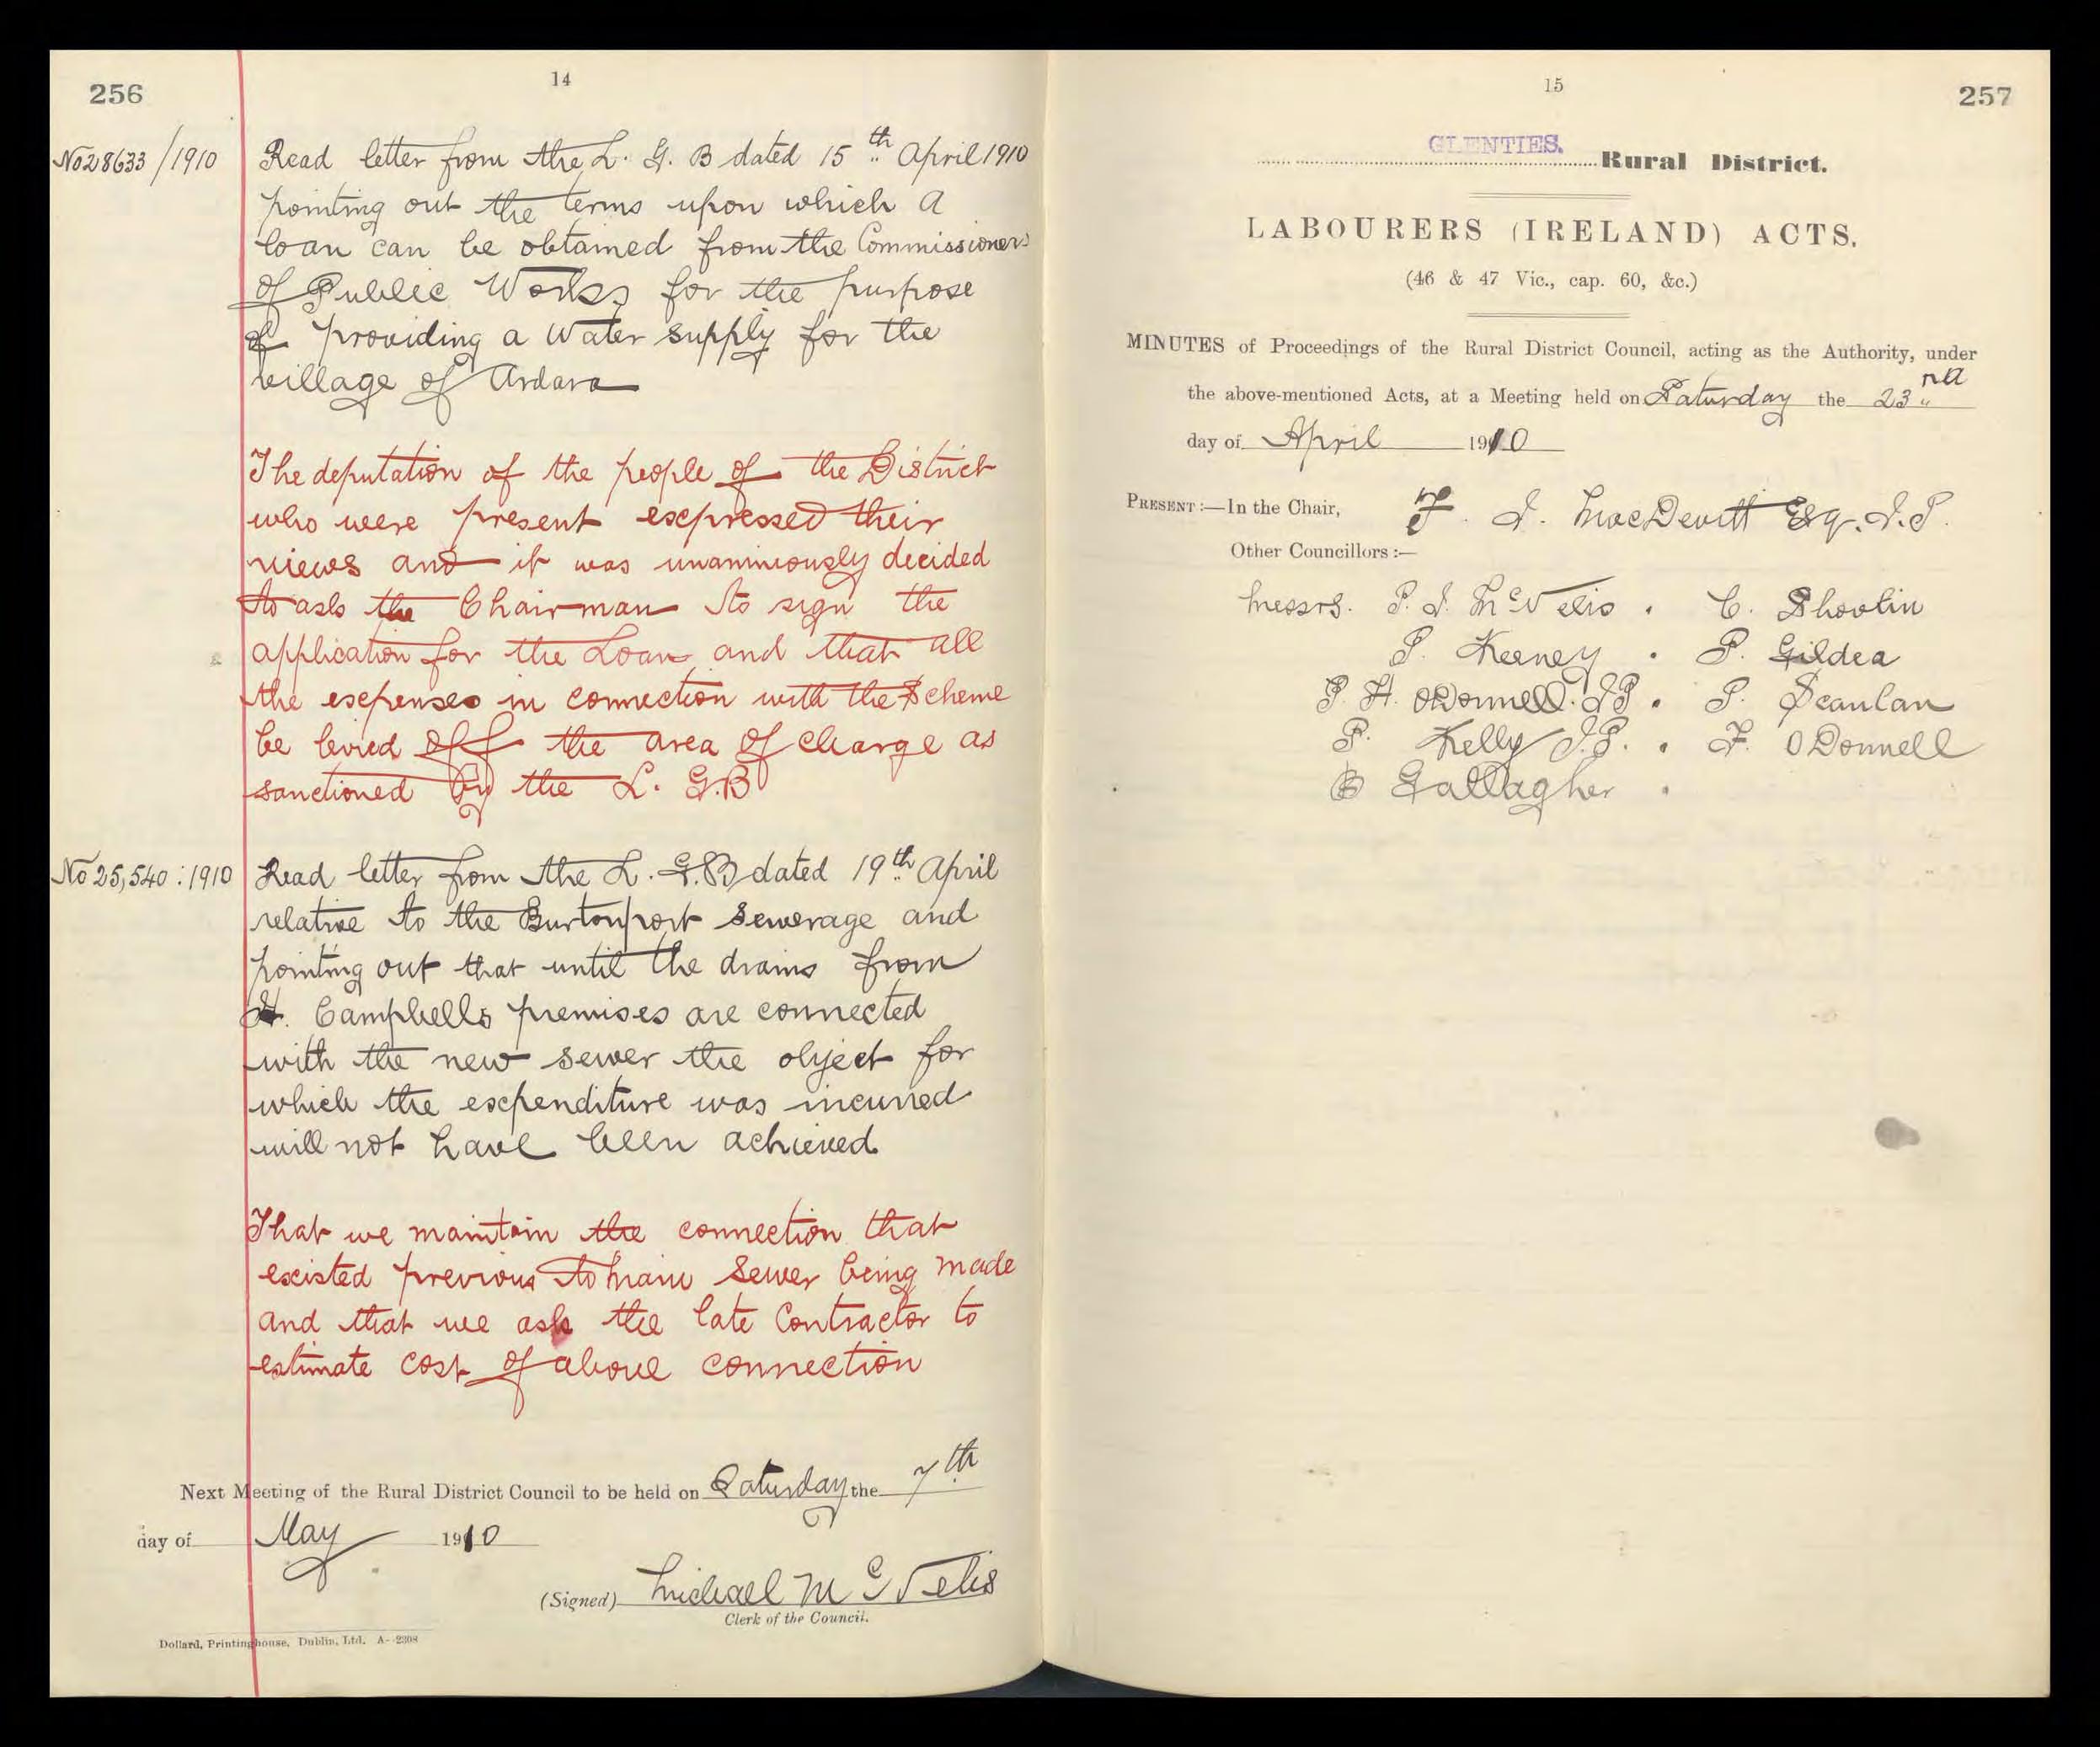 256
14
No 28633/1910
Read letter from the L. G. B dated 15th April 1910
pointing out the terms upon which a
loan can be obtained from the Commissioners
of Public Works for the purpose
of providing a Water supply for the
village of Ardara
The deputation of the people of the District
who were present expressed their
views and it was unanimously decided
to ask the Chairman to sign the
application for the Loan and that all
the expenses in connection with the Scheme
be levied off the area of charge as
sanctioned by the L. G.B
No 25,540:1910
Read letter from the L. G.B dated 19th April
relative to the Burtonport Sewerage and
pointing out that until the drains from
Campbells premises are connected
with the new sewer the object for
which the expenditure was incurred
will not have been achieved.
That we maintain the connection that
existed previous to main Sewer being made
and that we ask the late Contractor to
estimate cost of above connection
Next Meeting of the Rural District Council to be held on Saturday the 7th
day of May 1910
(Signed) Michael McNelis
Clerk of the Council.
Dollard, Printinghouse, Dublin, Ltd. A--2308
15
257
GLENTIES. Rural District.
LABOURERS (IRELAND) ACTS.
(46 & 47 Vic., cap. 60, &c.)
MINUTES of Proceedings of the Rural District Council, acting as the Authority, under
the above-mentioned Acts, at a Meeting held on Saturday the 23rd
day of April 1910
PRESENT:—In the Chair, J. MacDevitt Esq. J.P.
Other Councillors:—
Messrs. P. J. McNelis . C. Shovlin
P. Keeney . P. Gildea
P. H. ODonnell. JP . P. Scanlan
P. Kelly J.P. . F. ODonnell
Gallagher .